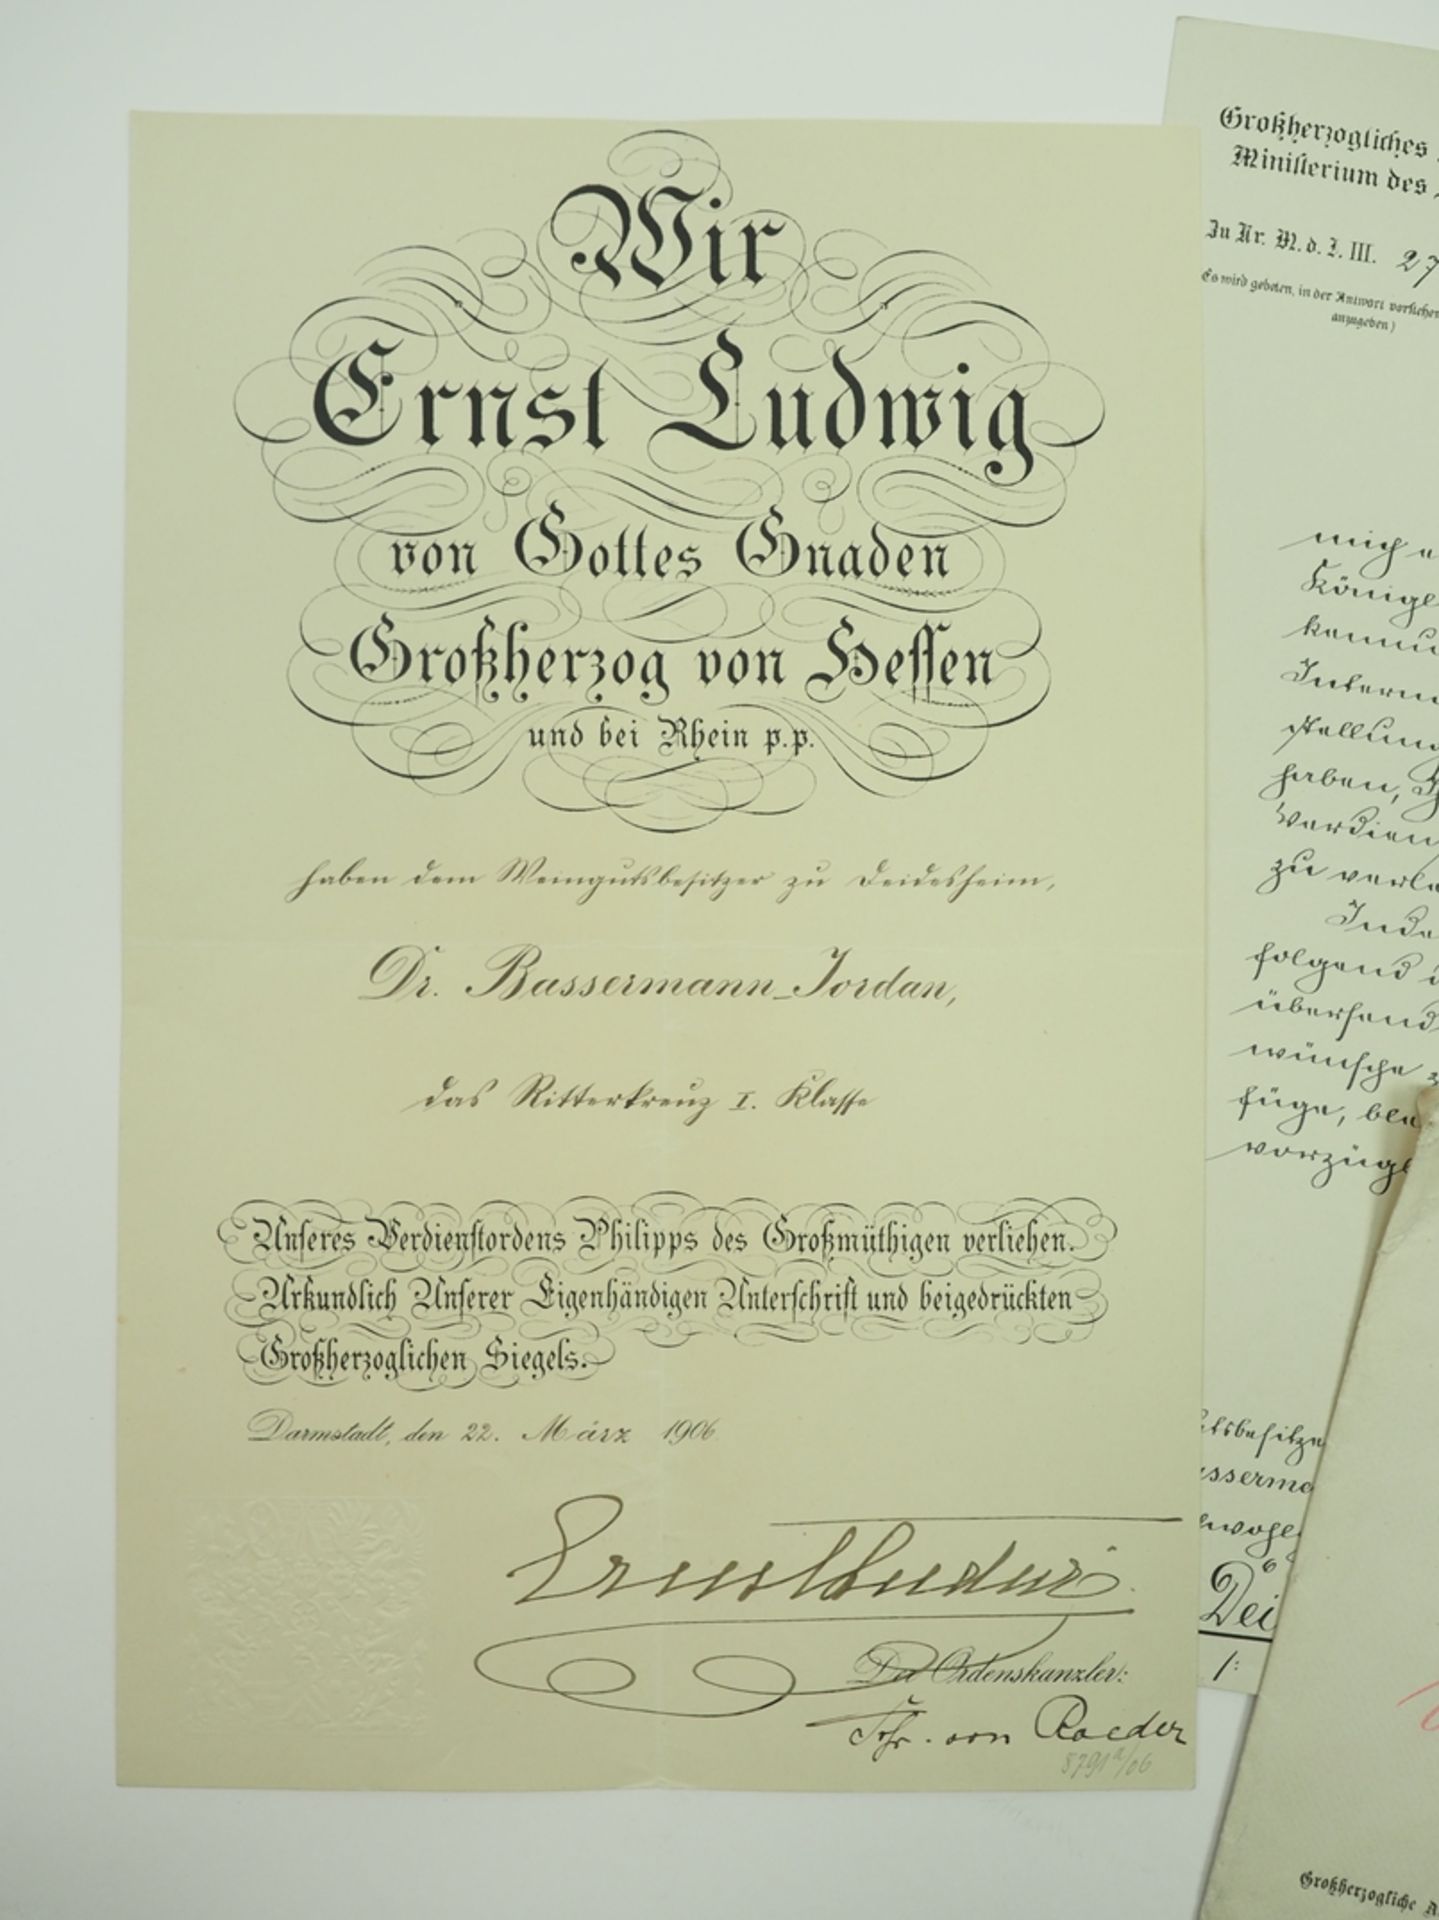 Wir
Ernst Ludwig
von Gottes Gnaden
Großherzog von Hessen
und bei Rhein p.p.
haben dem Weingutsbesitzer zu Deidesheim,
Dr. Bassermann-Jordan,
das Ritterkreuz I. Klasse
Unseres Verdienstordens Philipps des Großmüthigen verliehen.
Urkundlich Unserer Eigenhändigen Unterschrift und beigedrückten
Großherzoglichen Siegels.
Darmstadt, den 22. März 1906
Ernst Ludwig
Der Ordenskanzler:
Frhr. von Roeder
8791a/06
Großherzogliches
Ministerium des
Zu Nr. M. d. I. III. 27
Es wird gebeten, in der Antwort vorstehen
anzugeben)
mich
Königl
kennu
Intern
stellung
haben,
Verdien
zu verle
Inde
folgend
übersend
wünsche
füge,
vorzügl
tsbesitze
sserma
Dei
1:
Großherzogliche